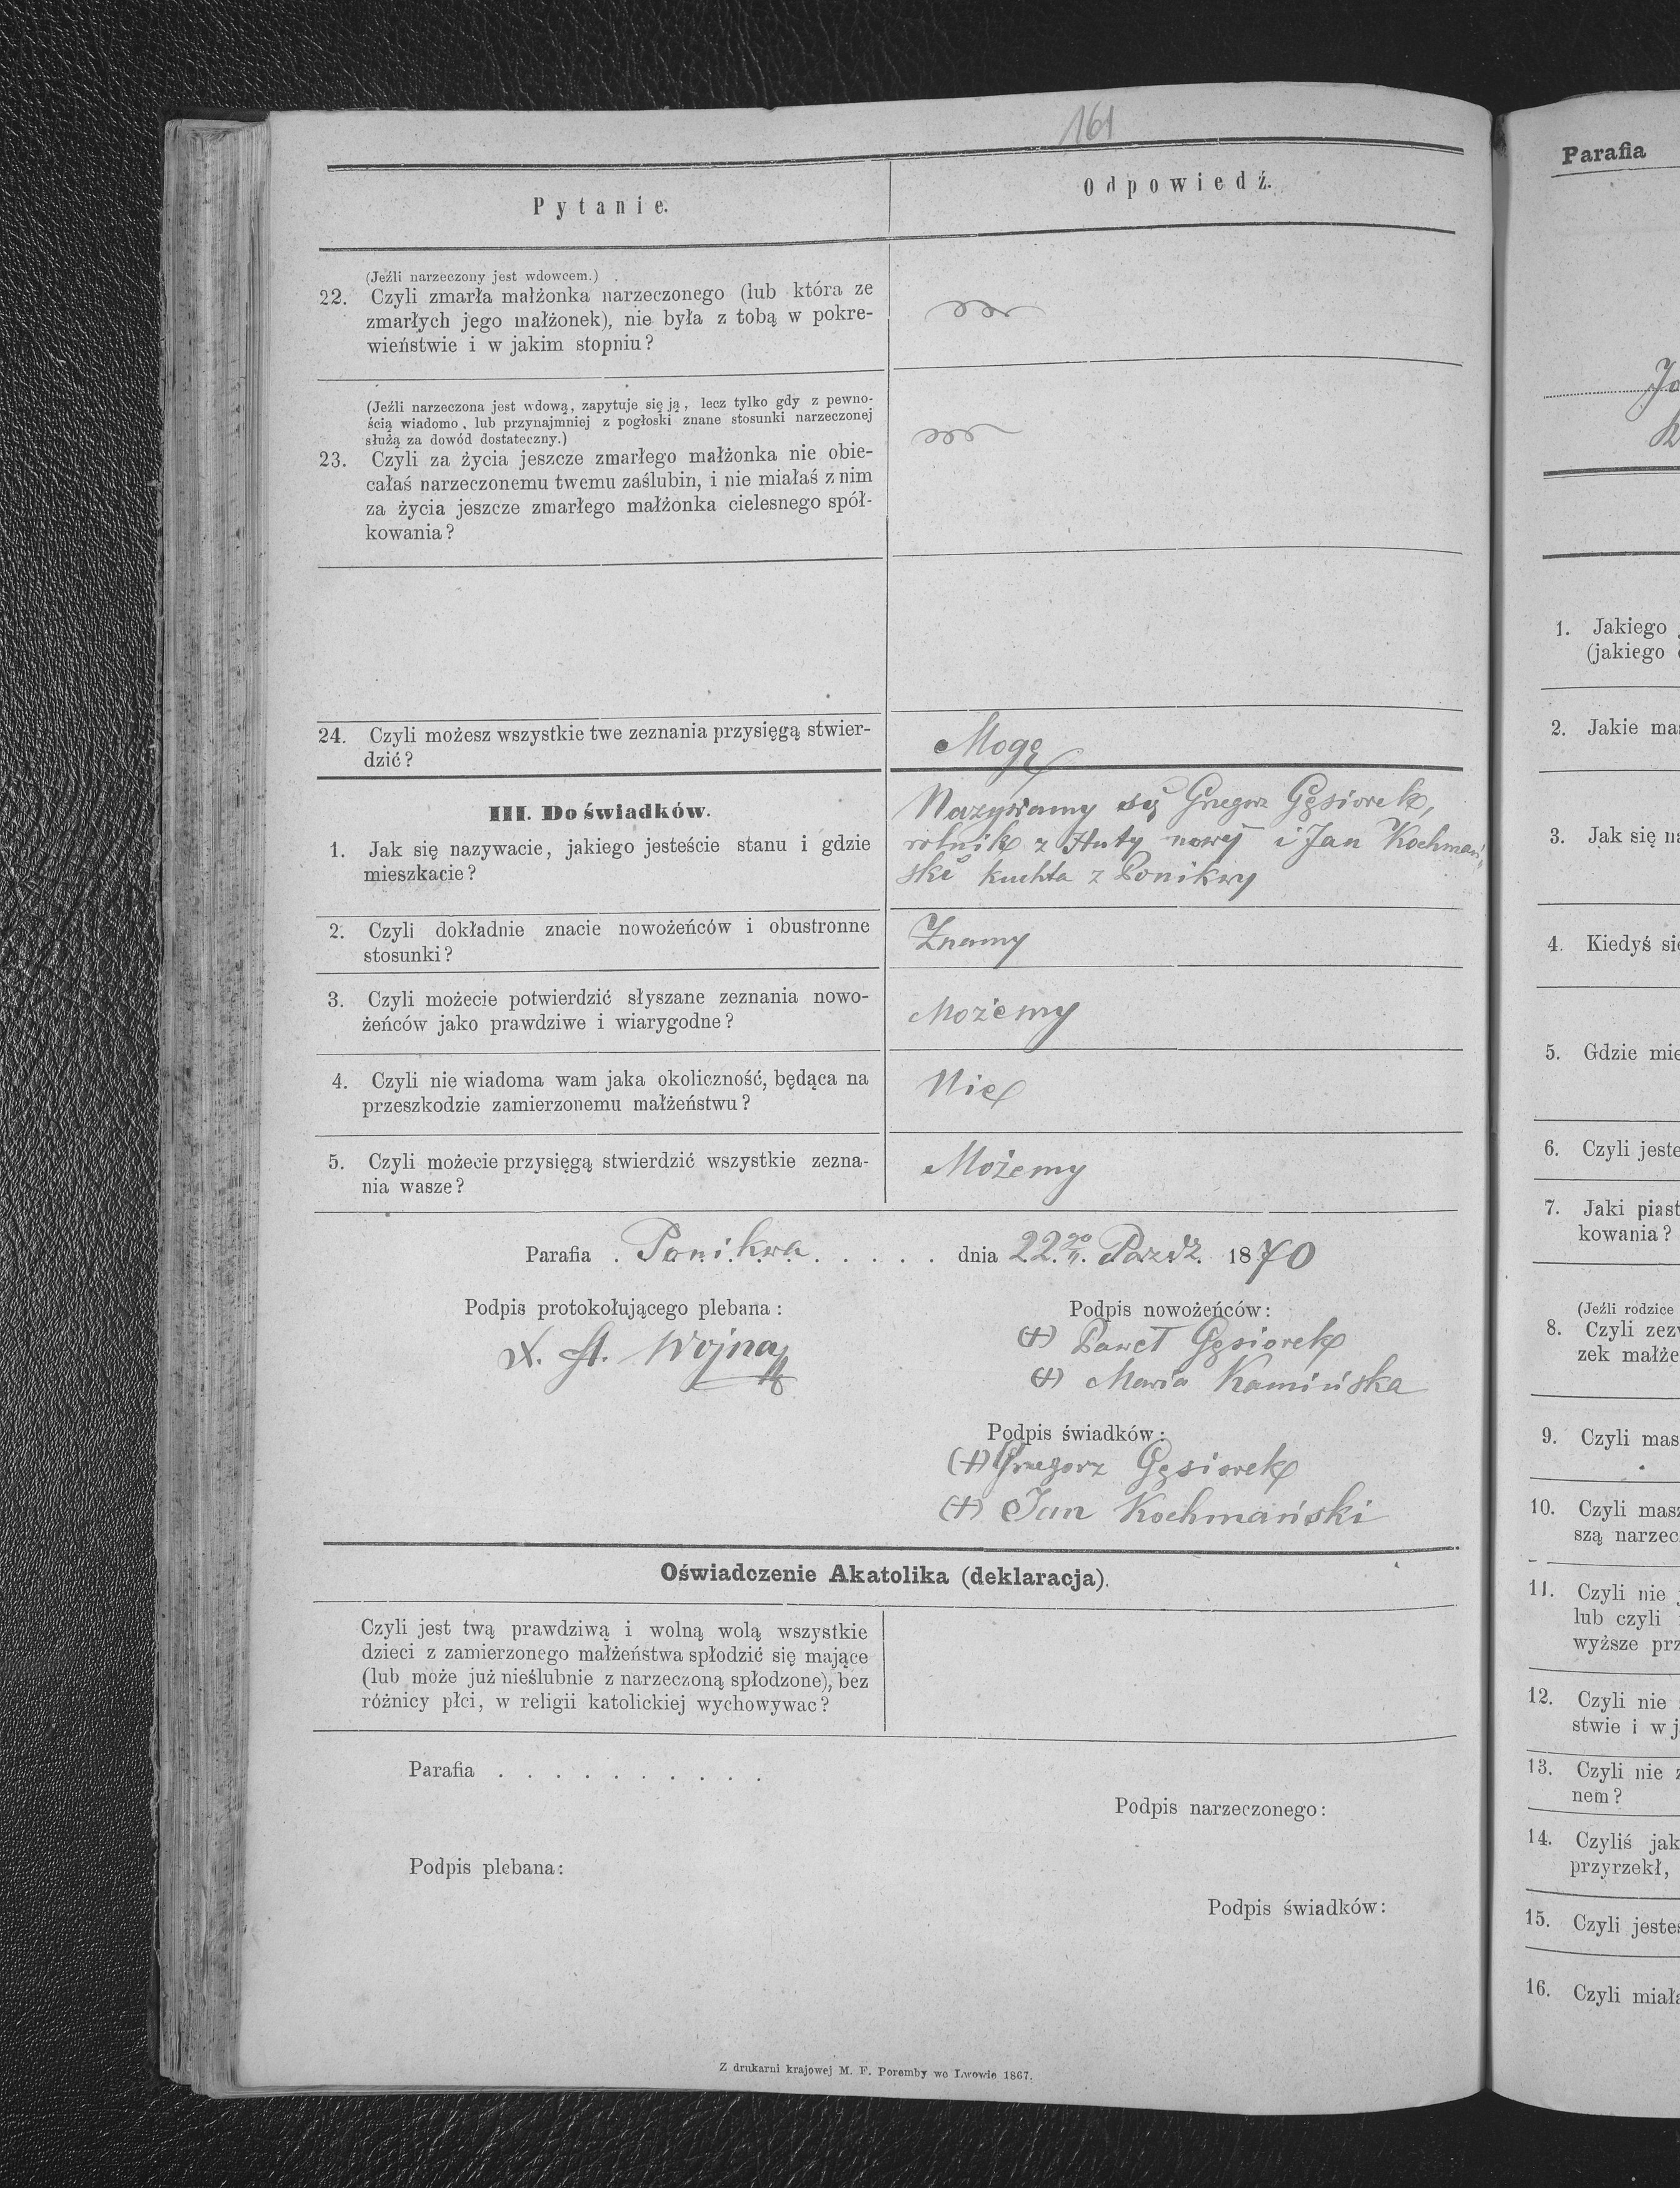 161
Pytanie.
Odpowiedź.
(Jeźli narzeczony jest wdowcem.)
22. Czyli zmarła małżonka narzeczonego (lub która ze
zmarłych jego małżonek), nie była z tobą w pokre-
wieństwie i w jakim stopniu?
(Jeźli narzeczona jest wdową, zapytuje się ją, lecz tylko gdy z pewno-
ścią wiadomo, lub przynajmniej z pogłoski znane stosunki narzeczonej
służą za dowód dostateczny.)
23. Czyli za życia jeszcze zmarłego małżonka nie obie-
całaś narzeczonemu twemu zaślubin, i nie miałaś z nim
za życia jeszcze zmarłego małżonka cielesnego spół-
kowania?
24. Czyli możesz wszystkie twe zeznania przysięgą stwier-
dzić?
Mogę
III. Do świadków.
1. Jak się nazywacie, jakiego jesteście stanu i gdzie
mieszkacie?
Nazywamy się Grzegorz Gęsiorek,
rolnik z Huty nowej i Jan Kochmań-
ski kuchta z Ponikwy
2. Czyli dokładnie znacie nowożeńców i obustronne
stosunki?
Znamy
3. Czyli możecie potwierdzić słyszane zeznania nowo-
żeńców jako prawdziwe i wiarygodne?
Możemy
4. Czyli nie wiadoma wam jaka okoliczność, będąca na
przeszkodzie zamierzonemu małżeństwu?
Nie
5. Czyli możecie przysięgą stwierdzić wszystkie zezna-
nia wasze?
Możemy
Parafia . Ponikwa . . . . . dnia 22.go Pazdz. 1870
Podpis protokołującego plebana:
X. St. Wojna
Podpis nowożeńców:
(+) Paweł Gęsiorek
(+) Maria Kamińska
Podpis świadków:
(+) Grzegorz Gęsiorek
(+) Jan Kochmański
Oświadczenie Akatolika (deklaracja).
Czyli jest twą prawdziwą i wolną wolą wszystkie
dzieci z zamierzonego małżeństwa spłodzić się mające
(lub może już nieślubnie z narzeczoną spłodzone), bez
różnicy płci, w religii katolickiej wychowywac?
Parafia . . . . . . . . . .
Podpis narzeczonego:
Podpis plebana:
Podpis świadków:
Z drukarni krajowej M. F. Poremby we Lwowie 1867.
Parafia
1. Jakiego
(jakiego
2. Jakie
3. Jak się
4. Kiedyś
5. Gdzie
6. Czyli
7. Jaki
kowania?
(Jeźli rodzice
8. Czyli
zek
9. Czyli
10. Czyli
szą
11. Czyli nie
lub czyli
wyższe
12. Czyli nie
stwie i w
13. Czyli nie
nem?
14. Czyliś
przyrzekł,
15. Czyli
16. Czyli